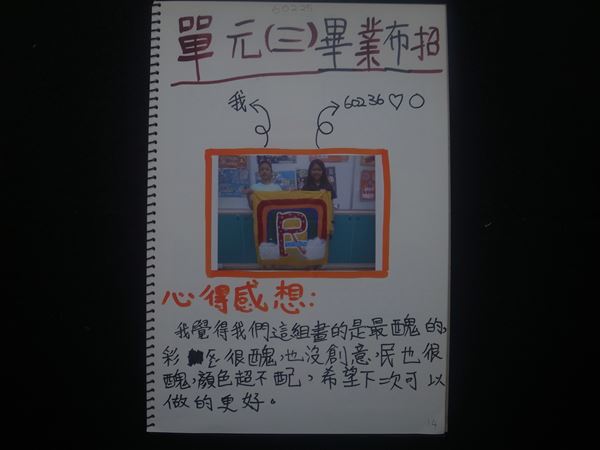 60225
單元(三)畢業布招
我
60236♡○
R
心得感想:
我覺得我們這組畫的是最醜的,
彩 很醜,也沒創意,民也很
醜,顏色超不配,希望下次可以
做的更好。
14